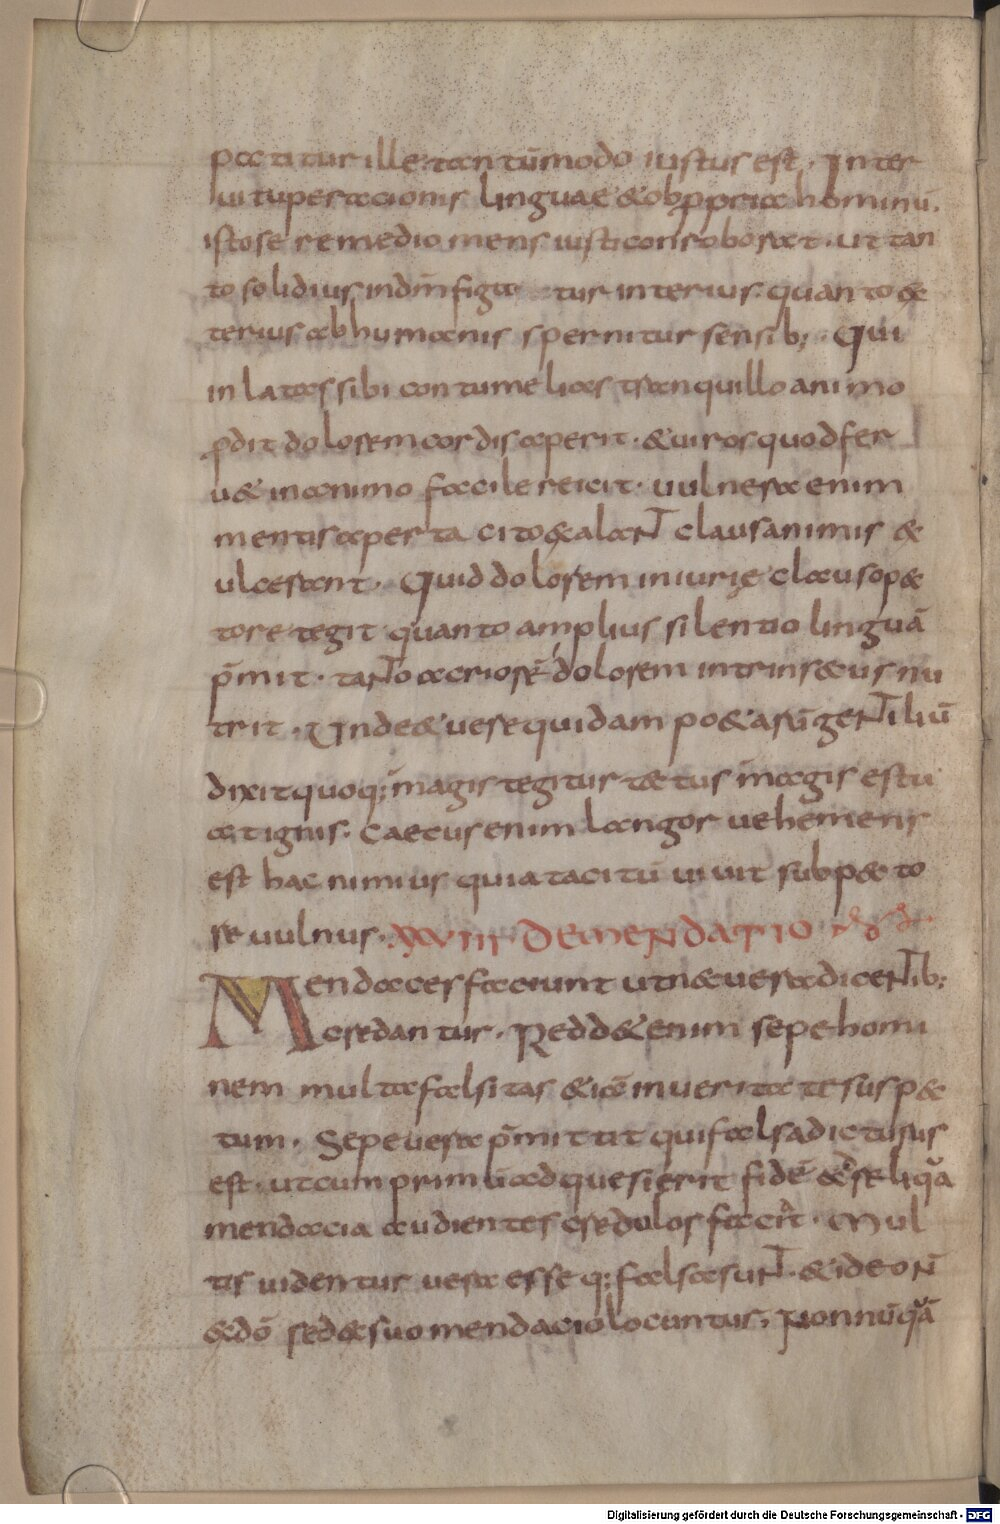 patitur ille. tantūmodo iustus est. Inter
uituperationis linguae & obpropria hominū.
isto se remedio mens iusti conroborat. ut tan
to solidius in dm̄ figa tur interius. quanto &
terius ab humanis spernitur sensib; . Qui
inlatas sibi contumelias tranquillo animo
ꝓdit dolorem cordis aperit. & uiros quod fer
u& in animo facile reicit. uulnera enim
mentis aperta cito &alaNT clausa nimis &
ulcerant. Quid dolorem iniurię clauso pe&
tore tegit quanto amplius silentio linguā
p̄mit. taNTo acriorē dolorem intrinsecus nu
trit. Unde & uere quidam poeta rū geNTiliū
dixit quoq; magis tegitur tætus magis estu
at ignis. Caecus enim langor uehemens
est hac nimius quia tacitū uiuit sub pe&to
re uulnus. XXVIII DE MENDATIO
Mendaces faciunt ut n& uera diceNTib;
credantur. Redd& enim sepe homi
nem multa falsitas &iā in ueritate suspe&
tum. Sepe uera p̄mittit qui falsa dicturus
est. ut cum primū adquesierit fidē ad reliqua
mendacia audientes credulos faciāt. Mul
tis uidentur uera esse q; falsa suNT. & ideo N̄
& dō sed & suo mendacio locuntur. Nonnūquā
Digitalisierung gefördert durch die Deutsche Forschungsgemeinschaft - DFG